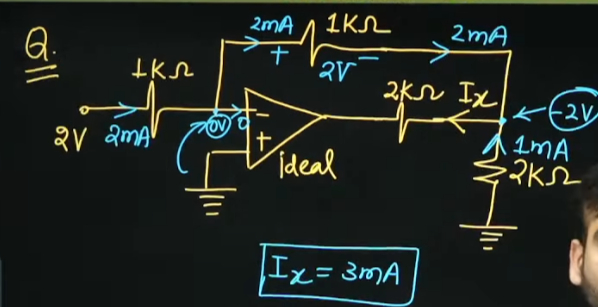 Q.
2mA 1KΩ 2mA
+ 2V -
1KΩ 2KΩ Ix
2V 2mA 0V 0 - -2V
+ 1mA
ideal 2KΩ
Ix = 3mA